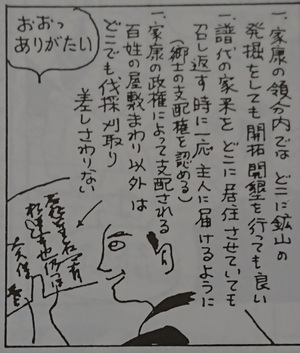 一、家康の領分内では どこに鉱山の
発掘をしても開拓開墾を行っても良い
一、譜代の家来を どこに居住させていても
召し返す時に一応 主人に届けるように
(郷士の支配権を認める)
一、家康の政権によって支配される
百姓の屋敷まわり以外は
どこでも伐採刈取り
差しさわりない
おおっ
ありがたい